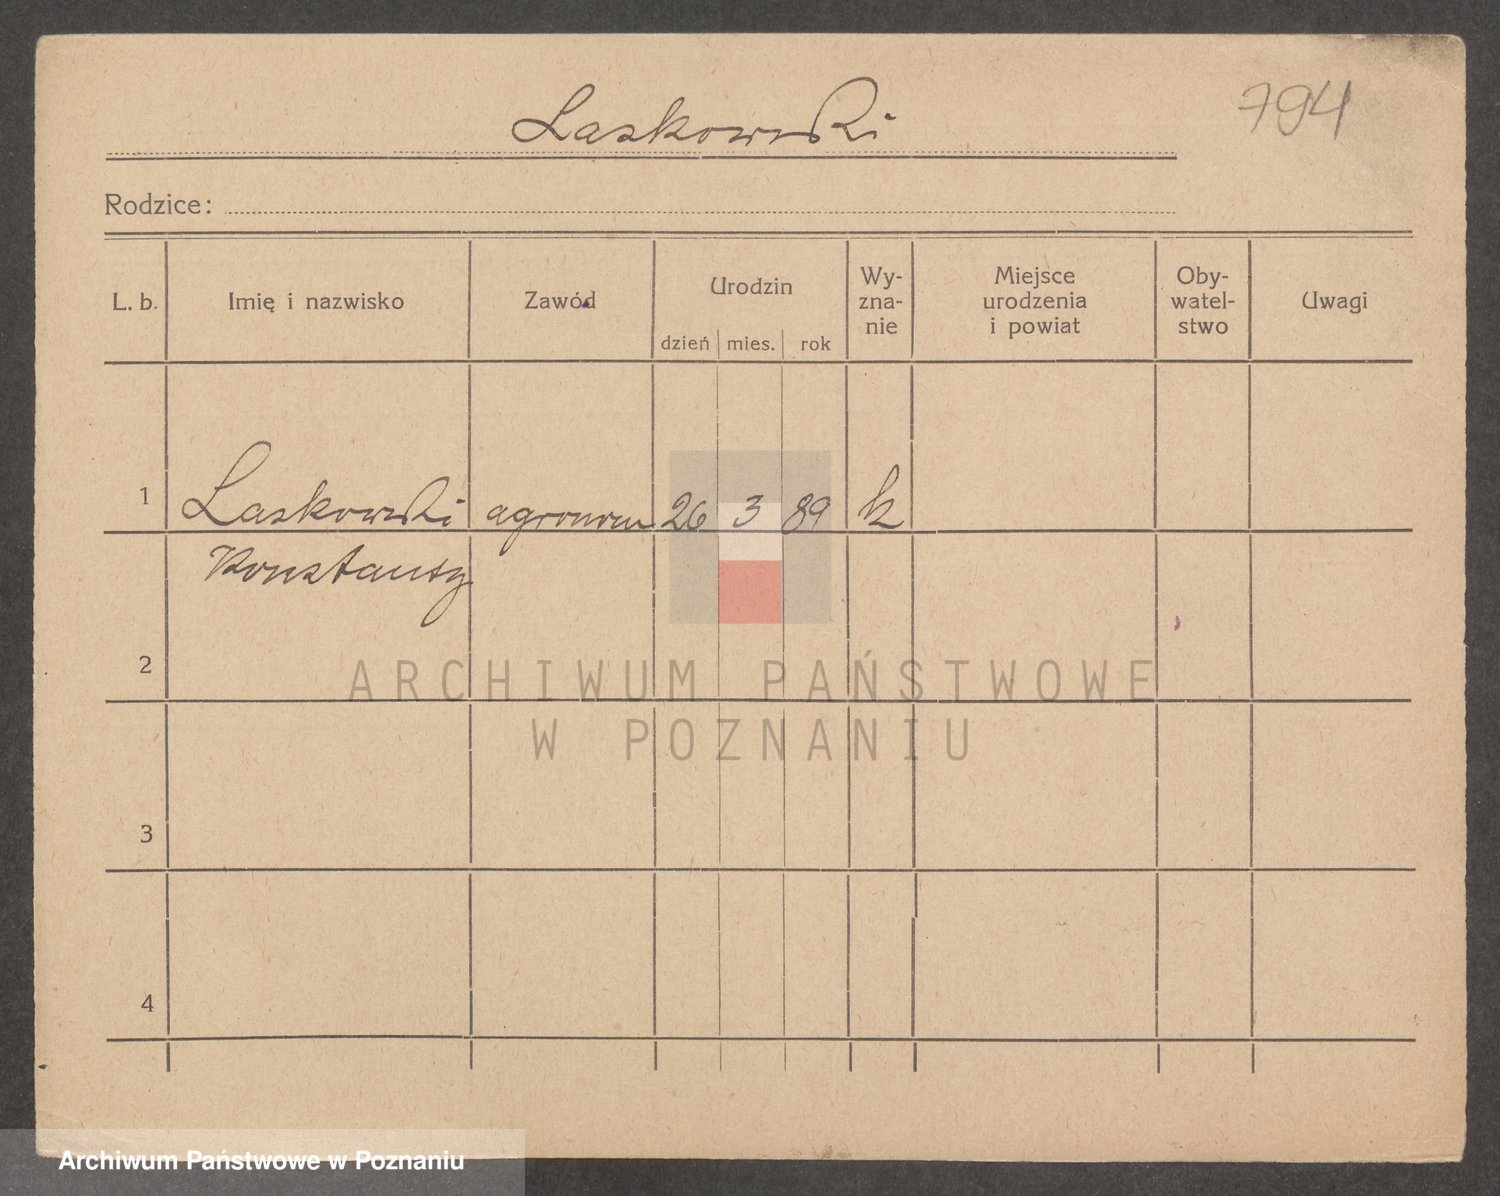 Laskowski
794
Rodzice:
L. b. Imię i nazwisko Zawód Urodzin dzień mies. rok Wy-zna-nie Miejsce urodzenia i powiat Oby-watel-stwo Uwagi
1 Laskowski agronom 26 3 89 k
Konstanty
2
ARCHIWUM PAŃSTWOWE
W POZNANIU
3
4
Archiwum Państwowe w Poznaniu